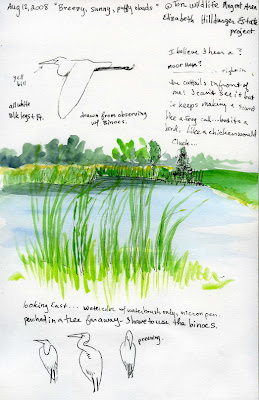 Aug 12, 2008 "Breezy, sunny, puffy clouds" @ Tom Wildlife Mngmt Area
Elizabeth Hilldanger Estate
project
yell
bill
all white
Blk legs + ft.
drawn from observing
w/ Binocs.
I believe I hear a ?
moor Hen? ... right in
the cattails in front of
me! I can't see it but
it keeps making a sound
like a frog call... but its a
bird, like a chicken would
Cluck...
Looking East... watercolor w/ waterbrush only, micron pen.
perched in a tree far away - I have to use the binocs.
preening.